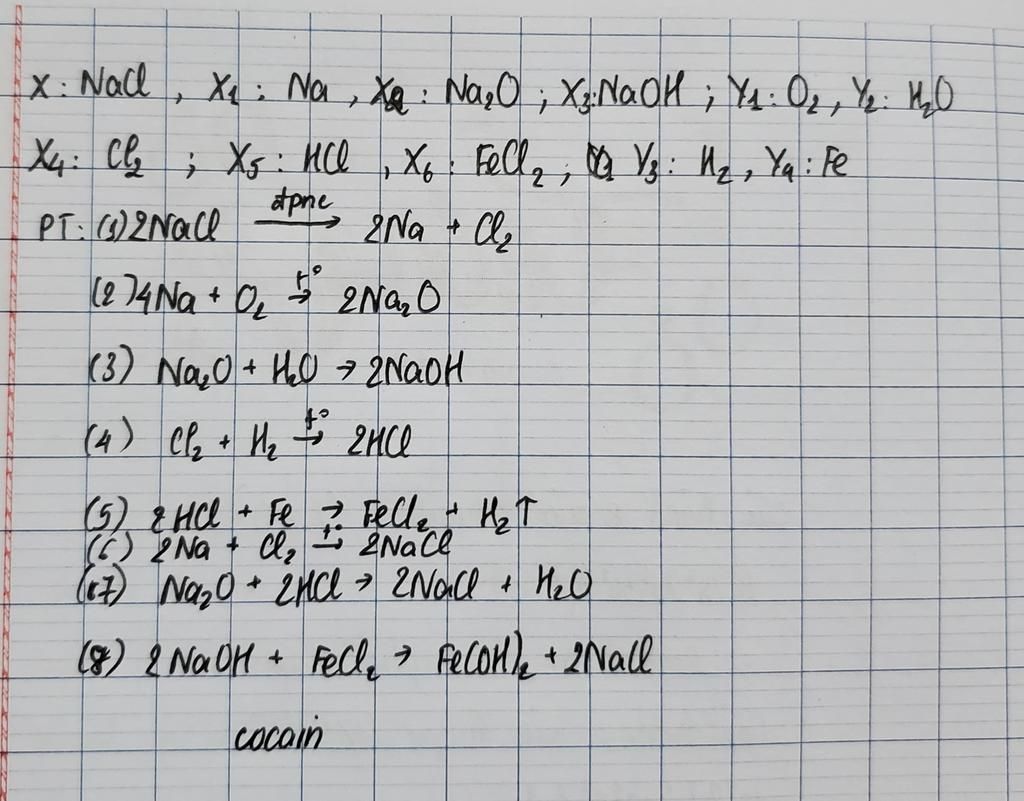 X : NaCl , X1 : Na , X2 : Na2O ; X3:NaOH ; Y1 : O2 , Y2 : H2O
X4 : Cl2 ; X5 : HCl , X6 : FeCl2 ; Y3 : H2 , Y4 : Fe
PT: (1) 2NaCl đpnc → 2Na + Cl2
(2) 4Na + O2 t° → 2Na2O
(3) Na2O + H2O → 2NaOH
(4) Cl2 + H2 t° → 2HCl
(5) 2HCl + Fe → FeCl2 + H2↑
(6) 2Na + Cl2 t° → 2NaCl
(7) Na2O + 2HCl → 2NaCl + H2O
(8) 2NaOH + FeCl2 → Fe(OH)2 + 2NaCl
cocain